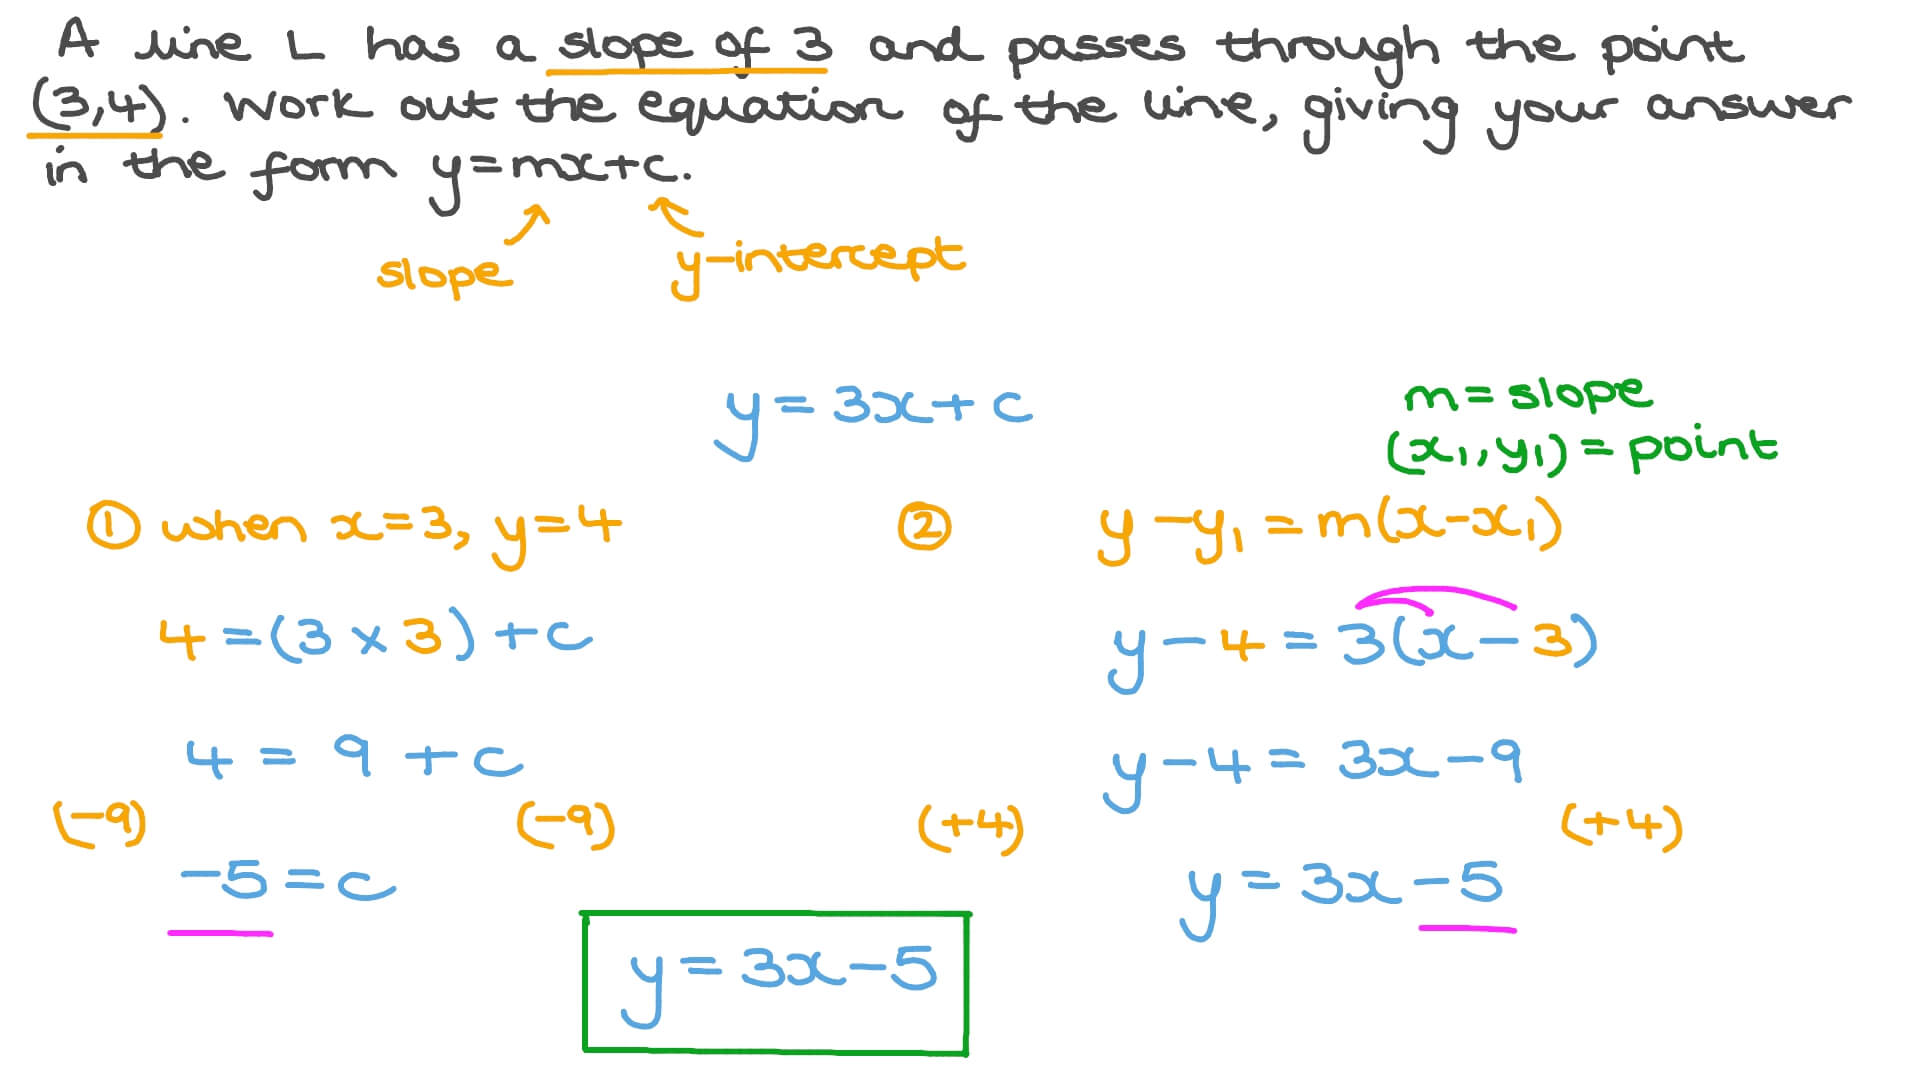 A line L has a slope of 3 and passes through the point
(3,4). Work out the equation of the line, giving your answer
in the form y=mx+c.
slope
y-intercept
y = 3x + c
m = slope
(x₁, y₁) = point
① when x=3, y=4
4 = (3 × 3) + c
4 = 9 + c
(-9) (-9)
-5 = c
② y - y₁ = m(x - x₁)
y - 4 = 3(x - 3)
y - 4 = 3x - 9
(+4) (+4)
y = 3x - 5
y = 3x - 5